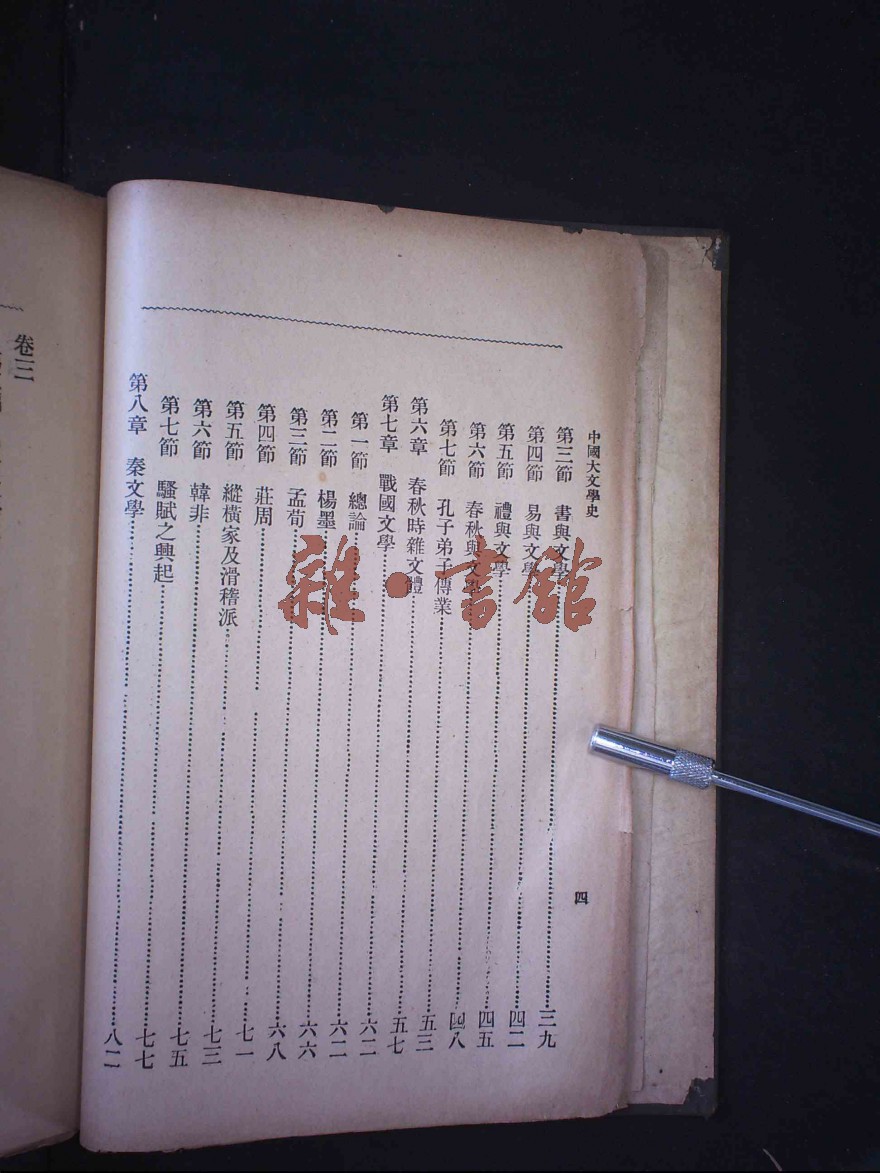 中國大文學史
四
第三節　書與文學……三九
第四節　易與文學……四二
第五節　禮與文學……四五
第六節　春秋與文學……四八
第七節　孔子弟子傳業……五三
第六章　春秋時雜文體……五七
第七章　戰國文學……六二
第一節　總論……六二
第二節　楊墨……六六
第三節　孟荀……六八
第四節　莊周……七一
第五節　縱橫家及滑稽派……七三
第六節　韓非……七五
第七節　騷賦之興起……七七
第八章　秦文學……八二
卷三
雜·書館